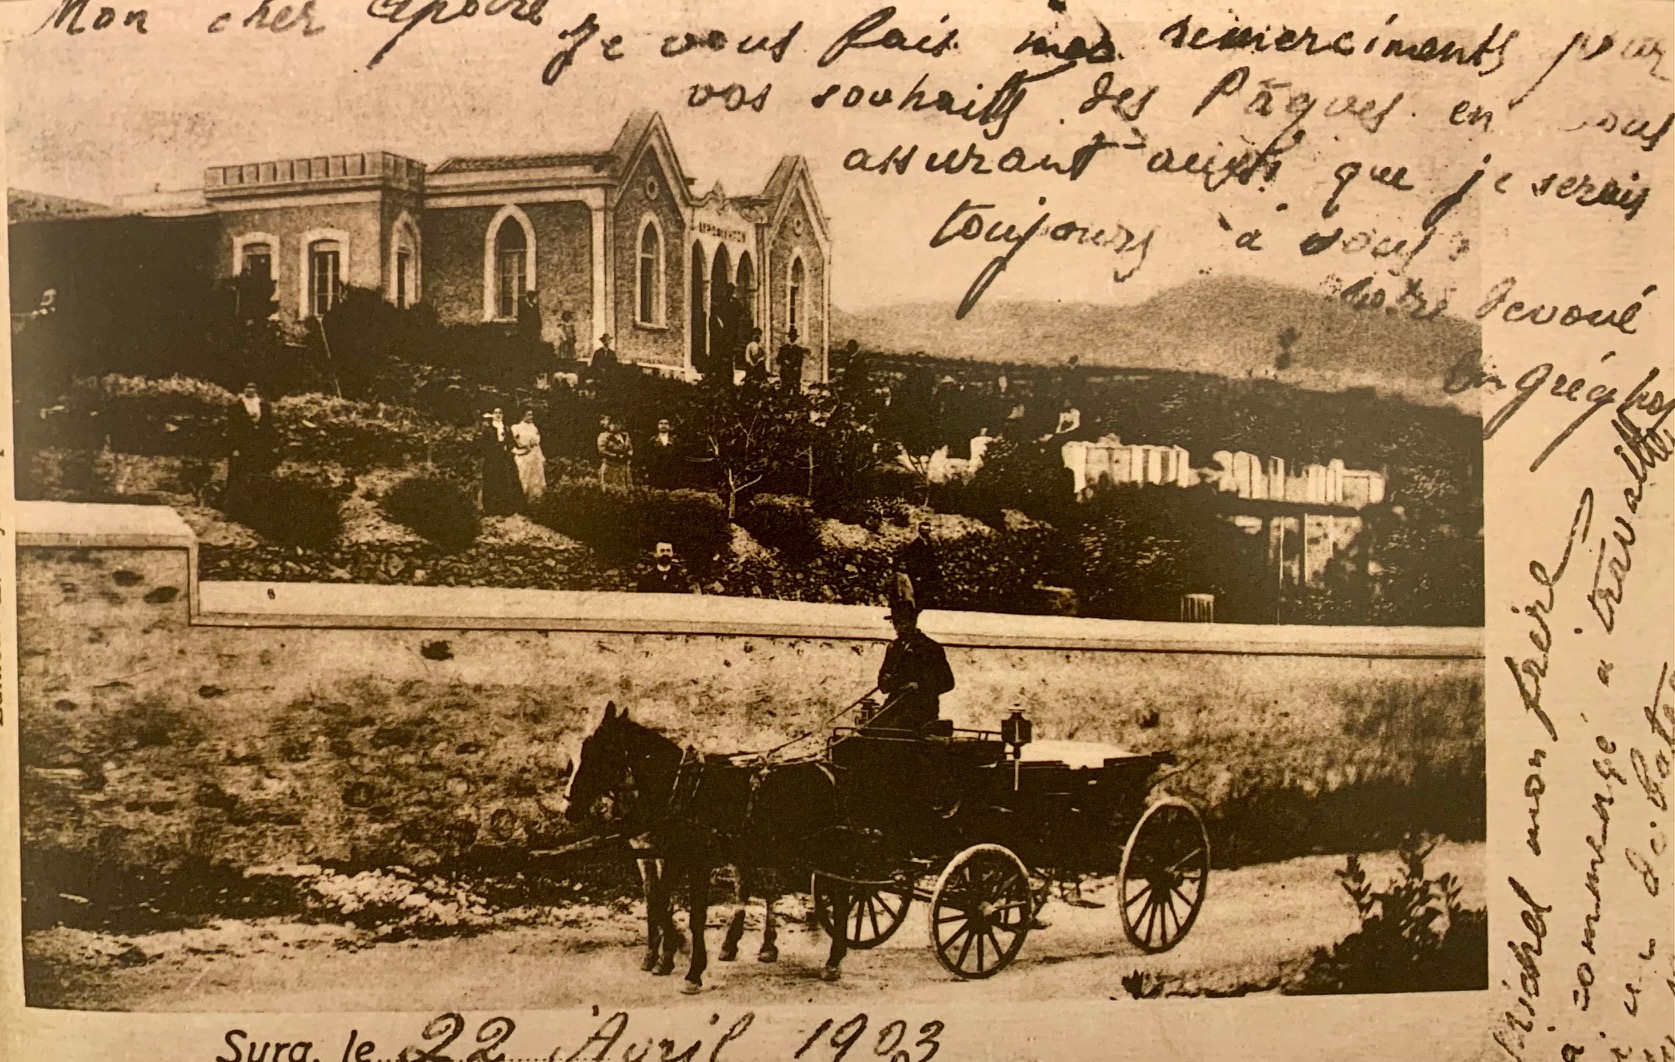 Mon cher
Je vous fais mes remerciments pour
vos souhaits des Pâques en vous
assurant aussi que je serais
toujours à vous
votre devoué
Michel mon frère
a commencé à travailler
Syra, le 22 Avril 1903
6